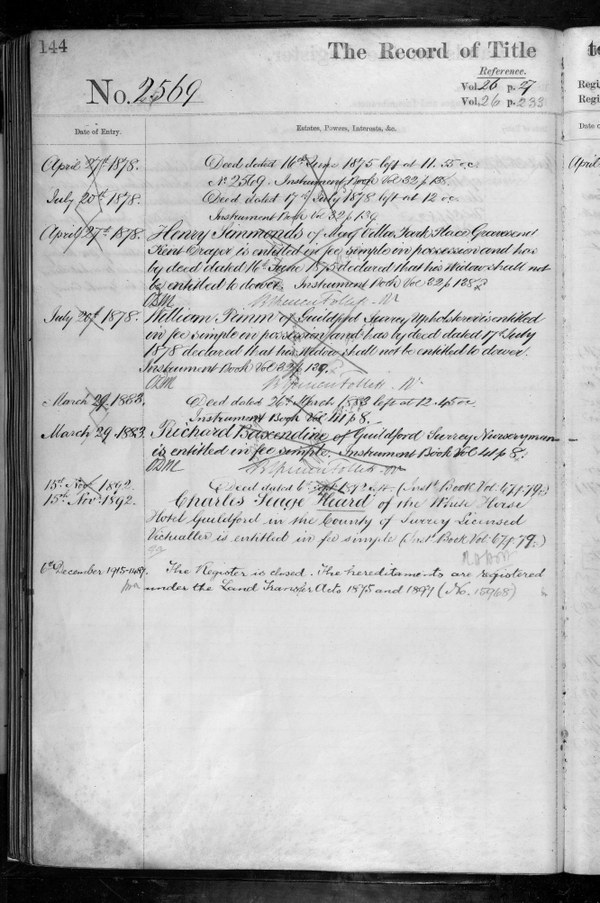 144
The Record of Title
Reference.
No. 2569
Vol. 26 p. 27
Vol. 26 p. 233
Date of Entry.
Estates, Powers, Interests, &c.
April 27th 1878. Deed dated 16th June 1875 left at 11.55 o.c.
No 2569. Instrument Book Vol 32 p 138.
July 20th 1878. Deed dated 17th July 1878 left at 12 o.c.
Instrument Book Vol 32 p 139.
April 27th 1878. Henry Simmonds of Place Gravesend
Kent Draper is entitled in fee simple in possession and has
by deed dated 16th June 1875 declared that his Widow shall not
be entitled to dower. Instrument Book Vol 32 p 138.
July 20th 1878. William Pimm of Guildford Surrey Upholsterer is entitled
in fee simple in possession and has by deed dated 17th July
1878 declared that his Widow shall not be entitled to dower.
Instrument Book Vol 32 p 139.
March 29. 1883. Deed dated 26th March 1883 left at 12.45 o.c.
Instrument Book Vol 41 p 8.
March 29. 1883. Richard Baxendine of Guildford Surrey Nurseryman
is entitled in fee simple. Instrument Book Vol 41 p 8.
15th Nov. 1892. Deed dated 6th 1892 (Inst. Book Vol. 67 p 79)
15th Nov. 1892. Charles Seage Heard of the White Horse
Hotel Guildford in the County of Surrey Licensed
Victualler is entitled in fee simple (Inst. Book Vol. 67 p 79.)
6th December 1915 - The Register is closed. The hereditaments are registered
under the Land Transfer Acts 1875 and 1897 (No. 15968)
Regi
Regi
Date of
April